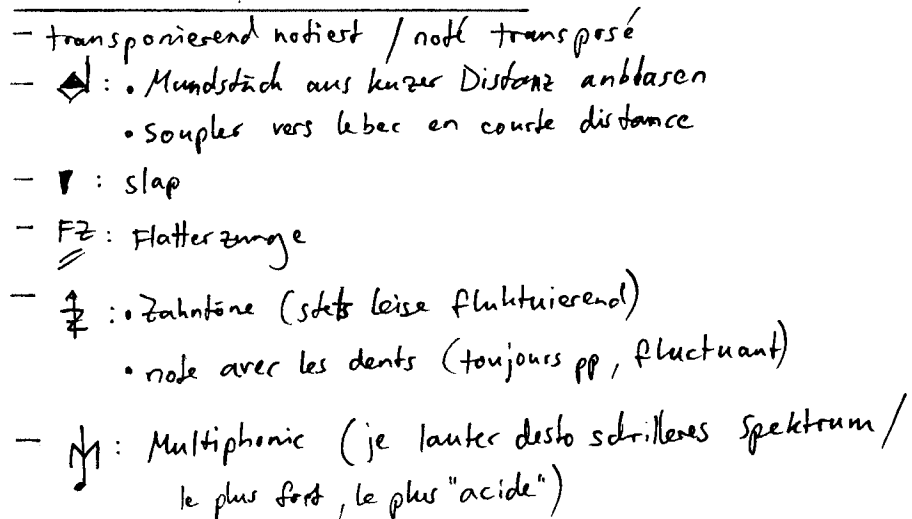 - transponierend notiert / noté transposé
- : • Mundstück aus kurzer Distanz anblasen
• soupler vers le bec en courte distance
- : slap
- FZ : Flatterzunge
- : • Zahntöne (stets leise fluktuierend)
• note avec les dents (toujours pp, fluctuant)
- M : Multiphonic (je lauter desto schrilleres Spektrum /
le plus fort, le plus "acide")